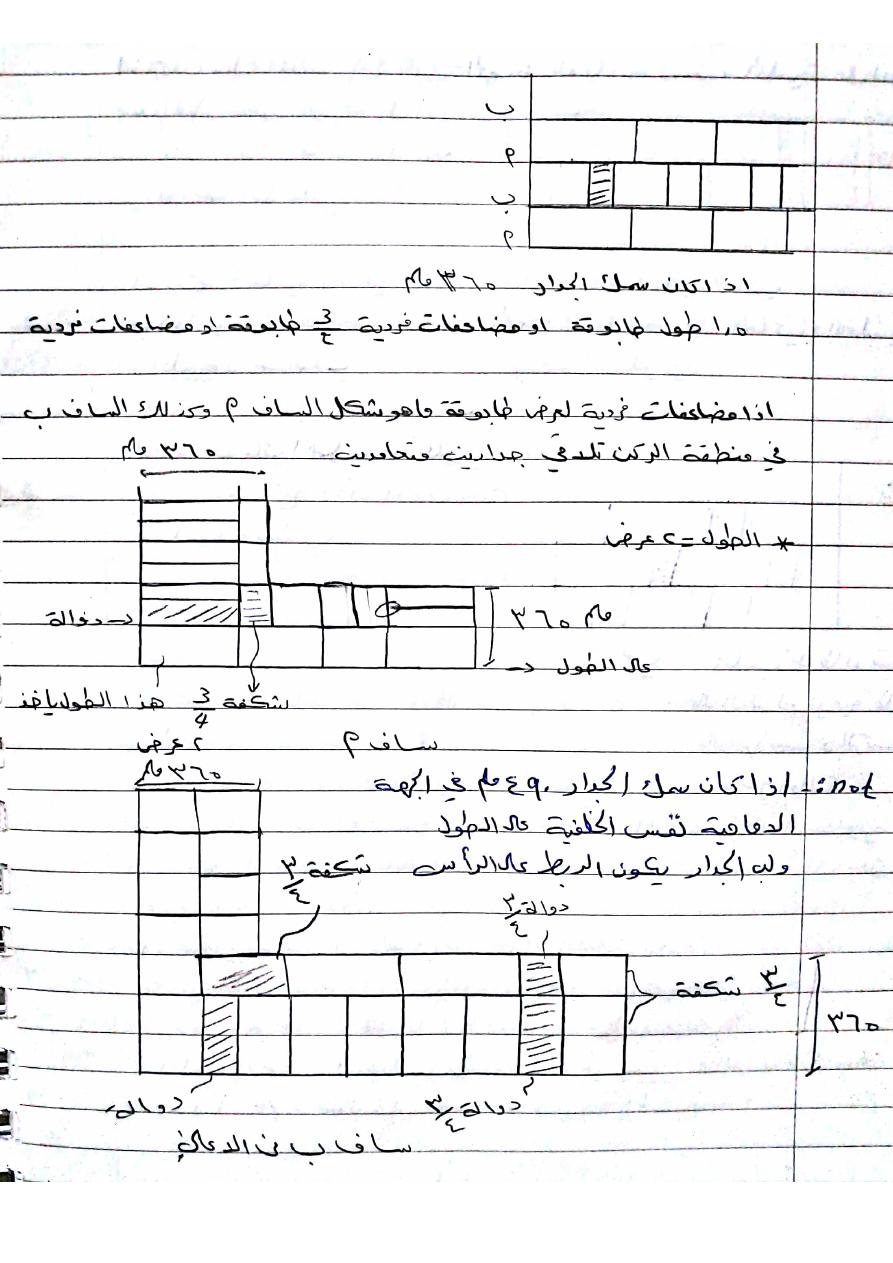 ب
م
ب
م
اذا كان سمك الجدار ٣٦٠ ملم
١,٥ طول طابوقة او مضاعفات فردية ٣/٤ طابوقة او مضاعفات فردية
اذا مضاعفات فردية لعرض طابوقة ما هو شكل الساف م وكذلك الساف ب
في منطقة الركن تلاقي جدارين متعامدين
٣٦٠ ملم
* الطول = ٢ عرض
٣٦٠ ملم
دوالة
عالطول
شكفة 3/4 هذا الطول ياخذ
٢ عرض
ساف م
٣٦٠ ملم
not:- اذا كان سمك الجدار ٤٩٠ ملم في الجهة
الامامية نفس الخلفية عالطول
ولب الجدار يكون الربط عالرأس
شكفة ٣/٤
دوالة ٣/٤
٣/٤ شكفة
٣٦٠
دوالة
دوالة ٣/٤
ساف ب من الاعلى